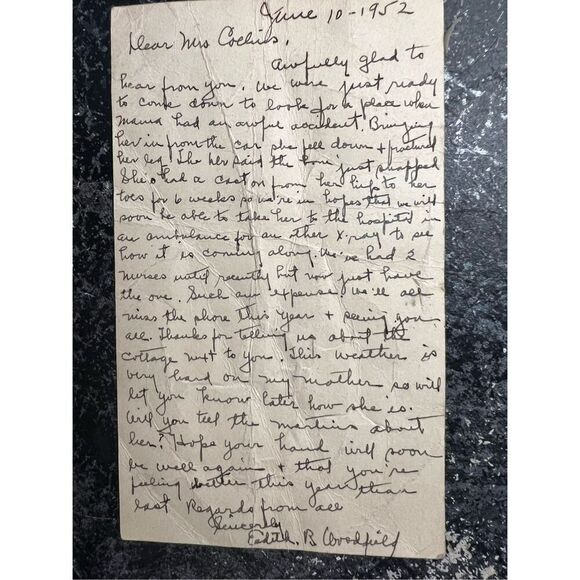 June 10-1952
Dear Mrs Collins,
Awfully glad to
hear from you. We were just ready
to come down to look for a place when
mama had an awful accident. Bringing
her in from the car she fell down + fractured
her leg. The said the bone just snapped
She's had a cast on from her hip to her
toes for 6 weeks so we're in hopes that we will
soon be able to take her to the hospital in
an ambulance for an other X-ray to see
how it is coming along. We've had 2
nurses until recently but now just have
the one. Such an expense we'll all
miss the shore this year + seeing you
all. Thanks for telling us about the
cottage next to you. This weather is
very hard on my mother so will
let you know later how she is.
Will you tell the Martins about
her? Hope your hand will soon
be well again + that you're
feeling better this year than
last Regards from all
Sincerely
Edith. B Woodfield